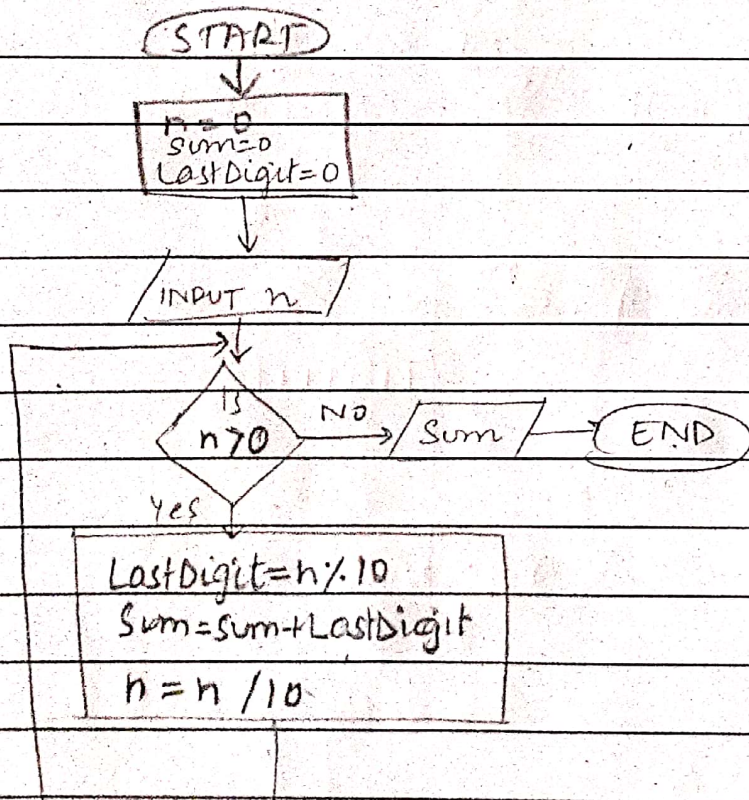 START
n = 0
Sum=0
LastDigit=0
INPUT n
Is
n>0
NO
Sum
END
Yes
LastDigit=n%10
Sum=Sum+LastDigit
n = n /10